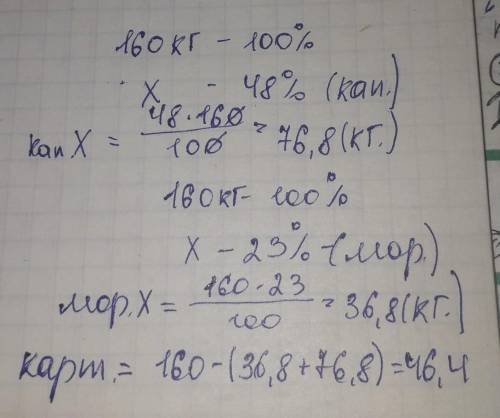 160кг - 100%
X - 48% (кап.)
кап X = 48·160/100 = 76,8 (кг.)
160кг - 100%
X - 23% - (мор.)
мор. X = 160·23/100 = 36,8 (кг.)
карт. = 160 - (36,8 + 76,8) = 46,4